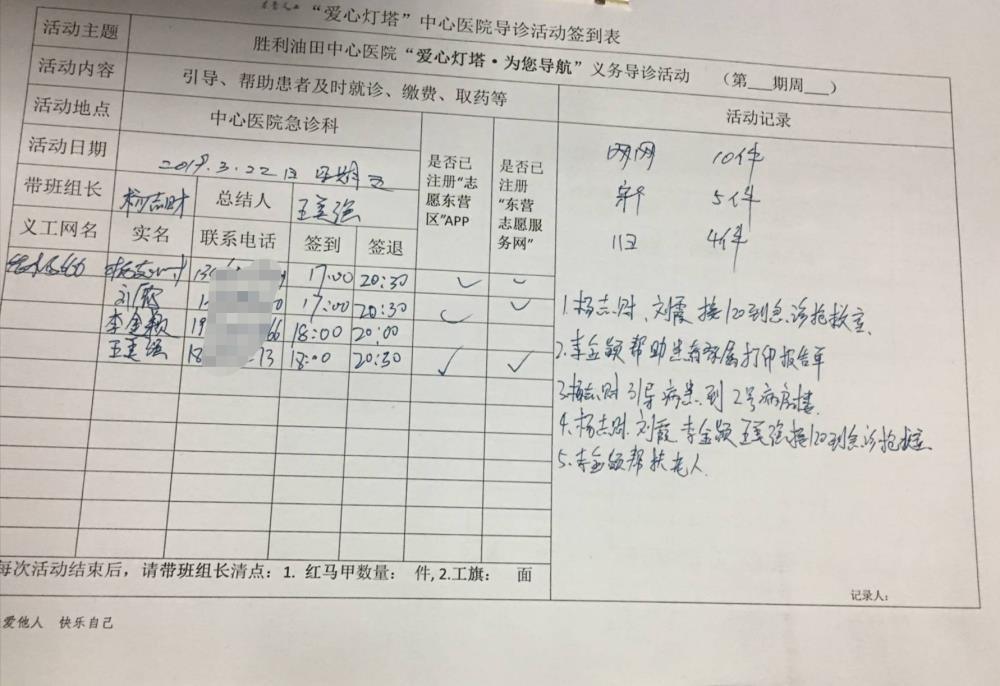 “爱心灯塔”中心医院导诊活动签到表
活动主题 胜利油田中心医院“爱心灯塔·为您导航”义务导诊活动 （第___期周___）
活动内容 引导、帮助患者及时就诊、缴费、取药等 活动记录
活动地点 中心医院急诊科 是否已注册“志愿东营区”APP 是否已注册“东营志愿服务网”
活动日期 2018.3.22日 星期
带班组长 杨志财 总结人 王美强
义工网名 实名 联系电话 签到 签退
17:00 20:30
刘霞 17:00 20:30
李金颖 19 66 18:00 20:00
王美强 18 13 18:00 20:30 ✓ ✓
10件
5件
4件
1.杨志财、刘霞接120到急诊抢救室
2.李金颖帮助患者家属打印报告单
3.杨志财引导病患到2号病房楼
4.杨志财 刘霞 李金颖 王美强接120到急诊抢救室
5.李金颖帮扶老人
每次活动结束后，请带班组长清点：1. 红马甲数量： 件, 2.工旗： 面
记录人：
爱他人 快乐自己